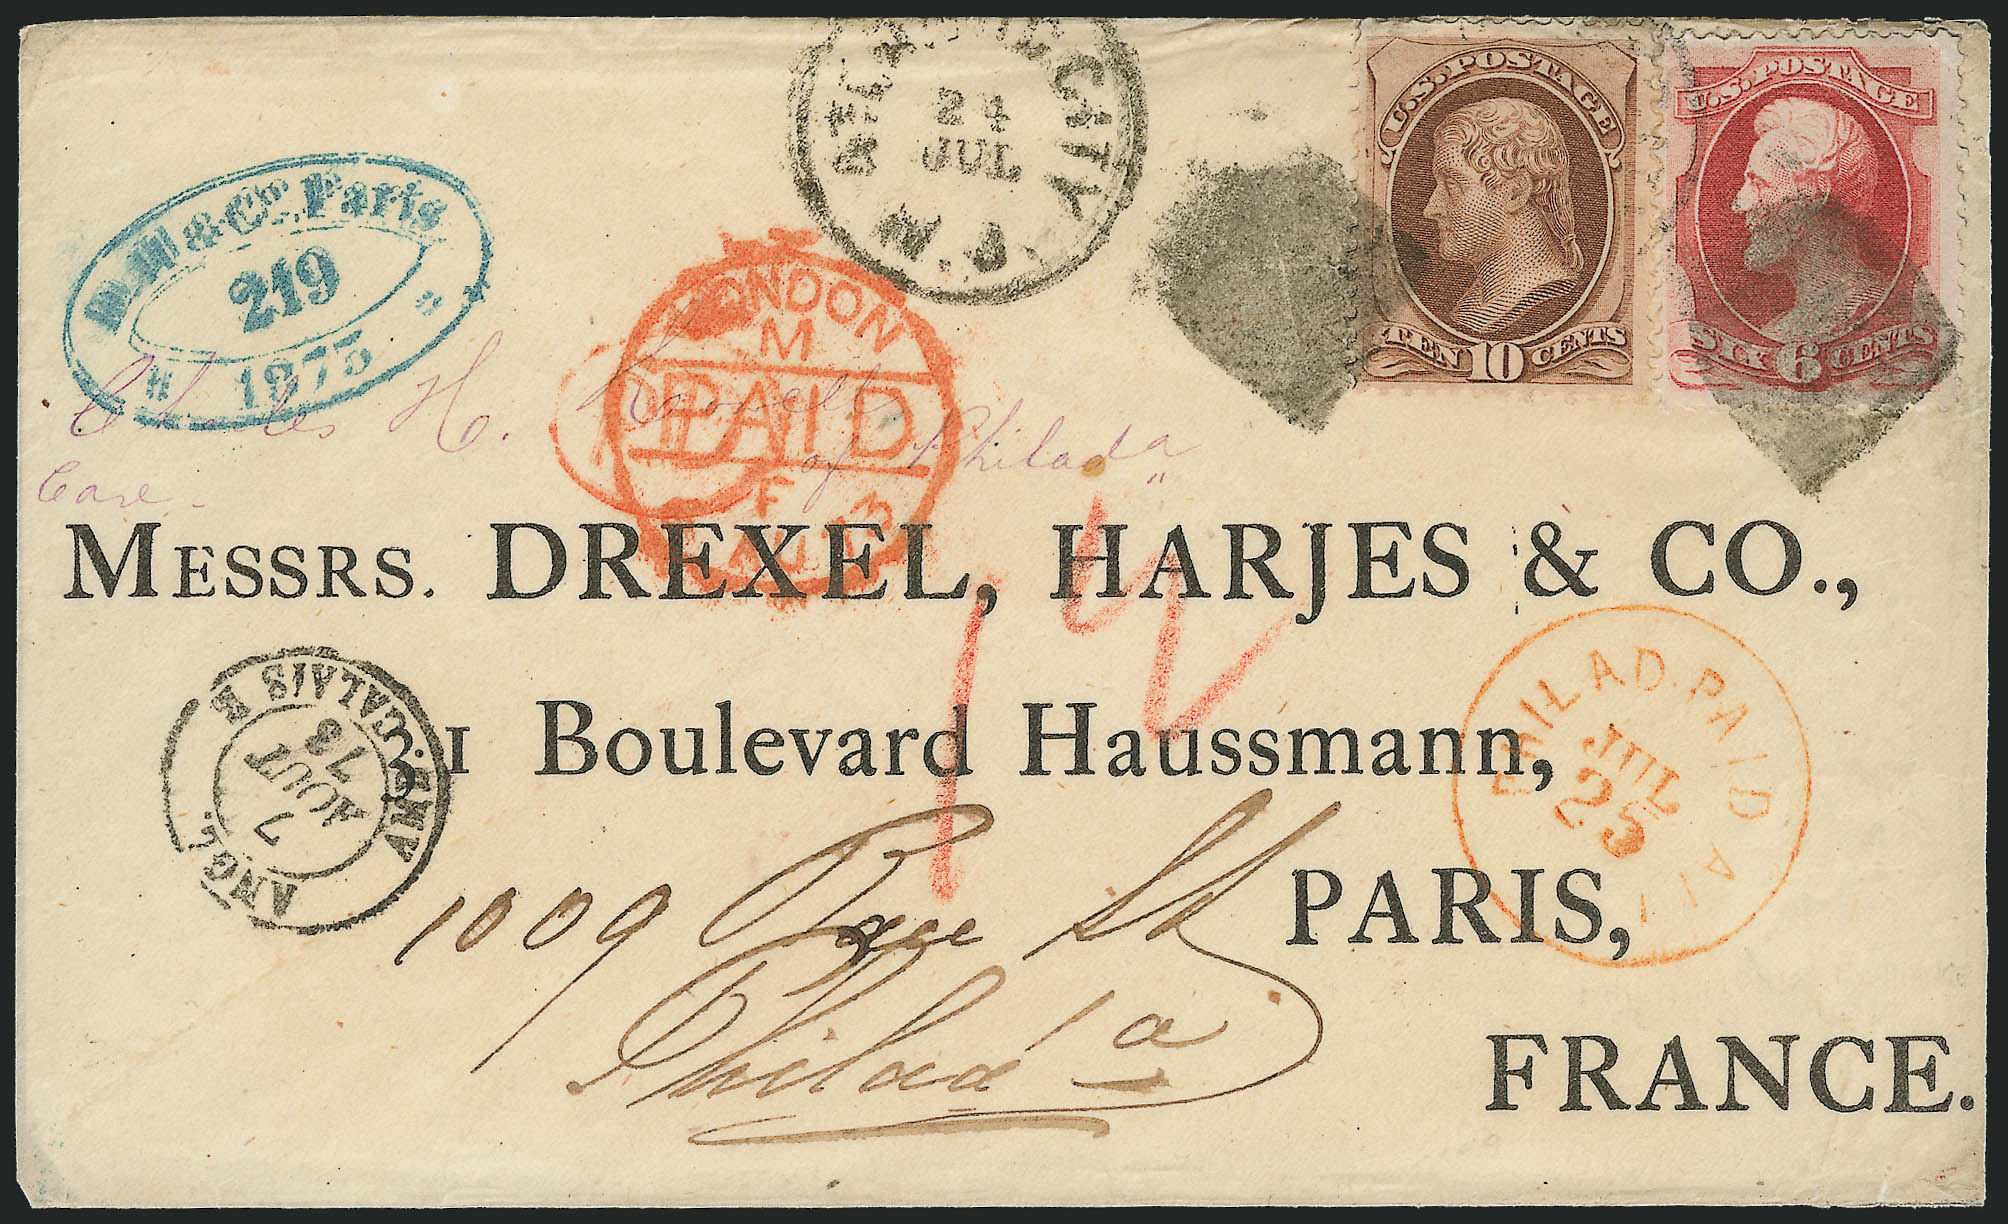 ATLANTIC CITY
24
JUL
N.J.
U.S. POSTAGE
TEN 10 CENTS
U.S. POSTAGE
SIX 6 CENTS
D.H & Co. Paris
219
1873
LONDON
M
PAID
F
AU 73
Charles H.
of Philada
Care
MESSRS. DREXEL, HARJES & CO.,
31 Boulevard Haussmann,
PARIS,
FRANCE.
12
PHILAD. PAID ALL
JUL
25
ANGL. AMB. CALAIS
7
AOUT
73
1009 Race St
Philad a